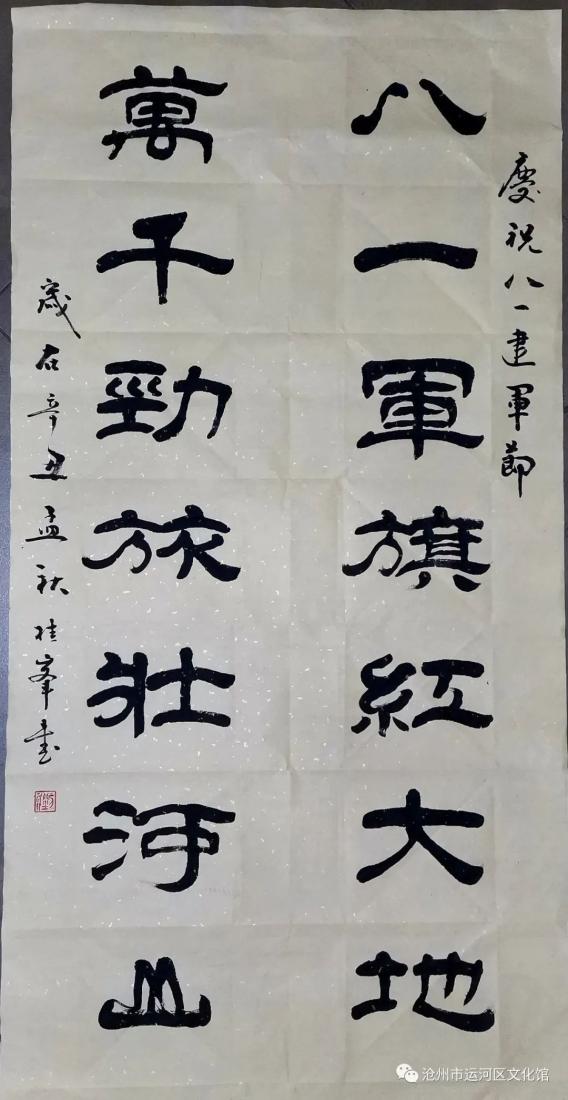 慶祝八一建軍節
八一軍旗紅大地
萬千勁旅壯河山
歲在辛丑孟秋桂峯書
沧州市运河区文化馆